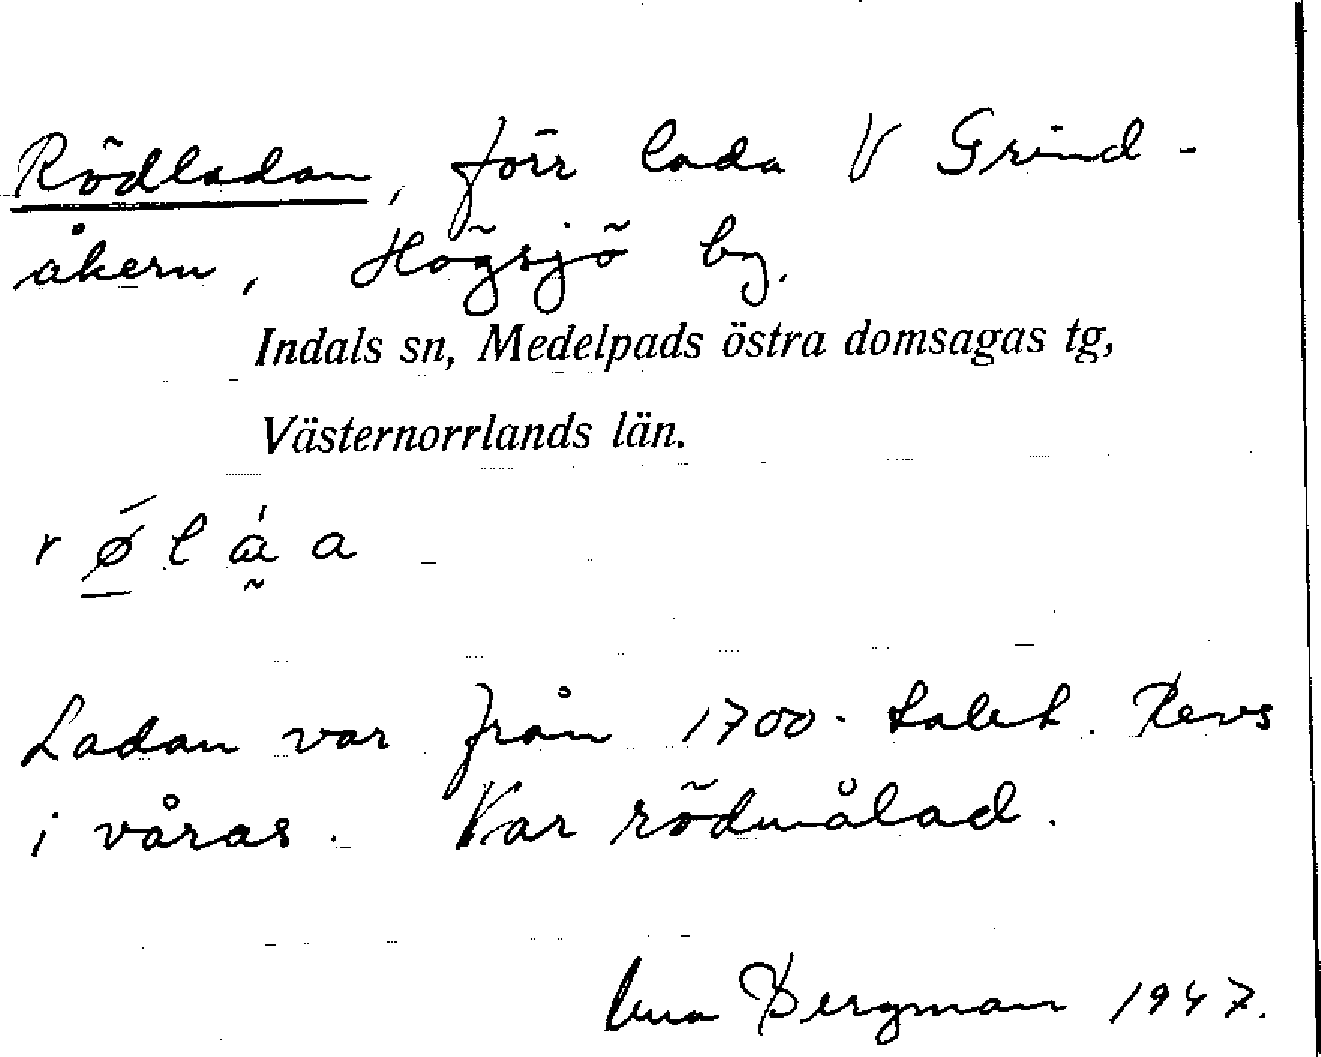 Rödladan, förr lada V Grind-
åkern, Högsjö by.
Indals sn, Medelpads östra domsagas tg,
Västernorrlands län.
Ladan var från 1700-talet. Revs
i våras. Var rödmålad.
Bergman 1947.